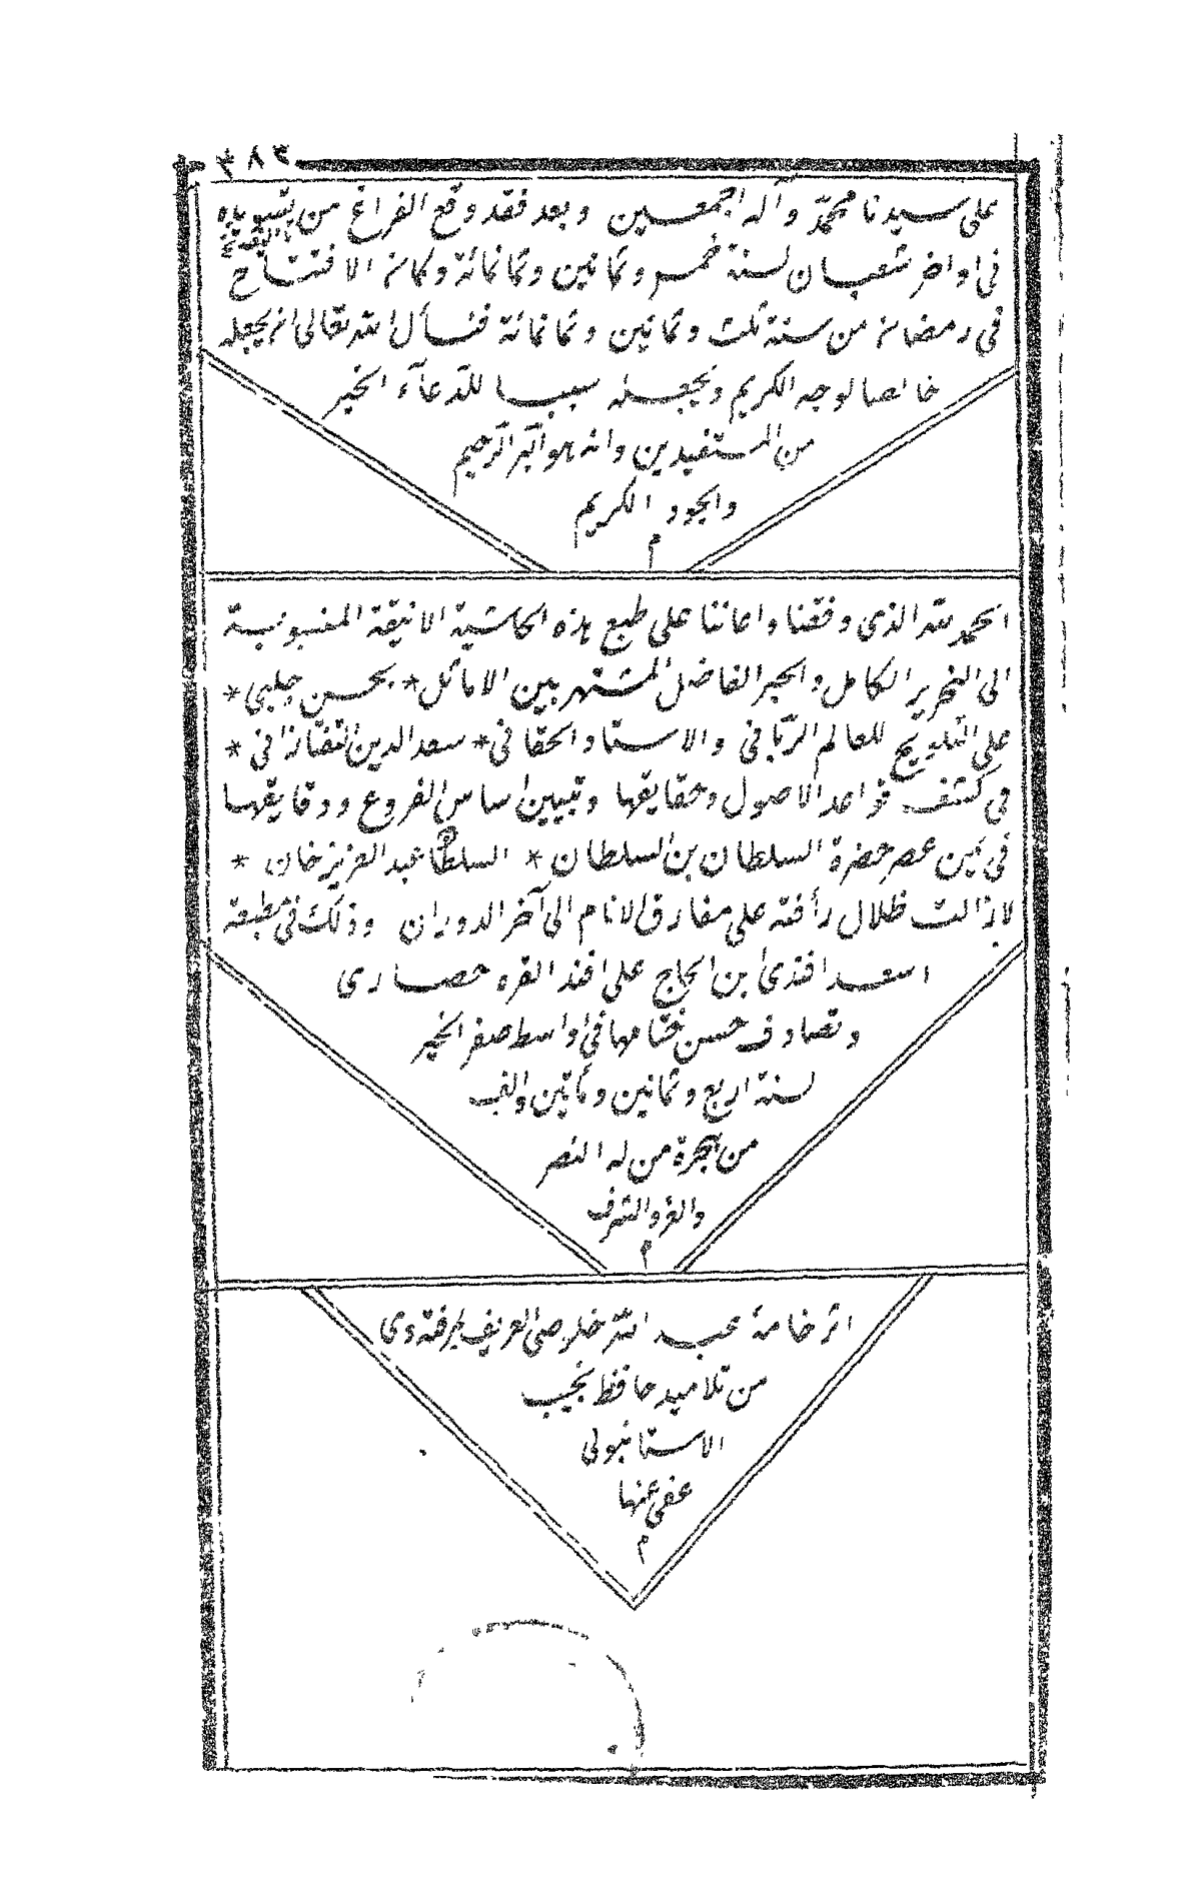 ٣٨٣
على سيدنا محمّد وآله اجمعين وبعد فقد وقع الفراغ من تسويده
فى اواخر شعبان لسنة خمس وثمانين وثمانمائة وكان الافتتاح
فى رمضان من سنة ثلث وثمانين وثمانمائة فنسأل الله تعالى ان يجعله
خالصا لوجه الكريم ويجعله سببا للدّعآء الخير
من المستفيدين وانه هو البّر الرّحيم
والجود الكريم
م
الحمد لله الذى وفقنا واعاننا على طبع هذه الحاشية الانيقة المنسوبة
الى النحرير الكامل والحبر الفاضل المشتهر بين الاماثل * بحسن چلبى *
على التلويح للعالم الرّبانى والاستاد الحقانى * سعد الدين التفتازانى *
فى كشف قواعد الاصول وحقايقها وتبيين اساس الفروع ودقايقها
فى يمين عصر حضرة السلطان بن السلطان * السلطان عبد العزيز خان *
لا زالت ظلال رأفته على مفارق الانام الى آخر الدوران وذلك فى مطبعة
اسعد افندى ابن الحاج على افندى القره حصارى
وتصادف حسن ختامها فى اواسط صفر الخير
لسنة اربع وثمانين ومأتين والف
من هجرة من له النصر
والعز والشرف
م
اثر خامهٔ عبد الله خلوصى العريف
من تلاميد حافظ نجيب
الاستانبولى
عفى عنها
م